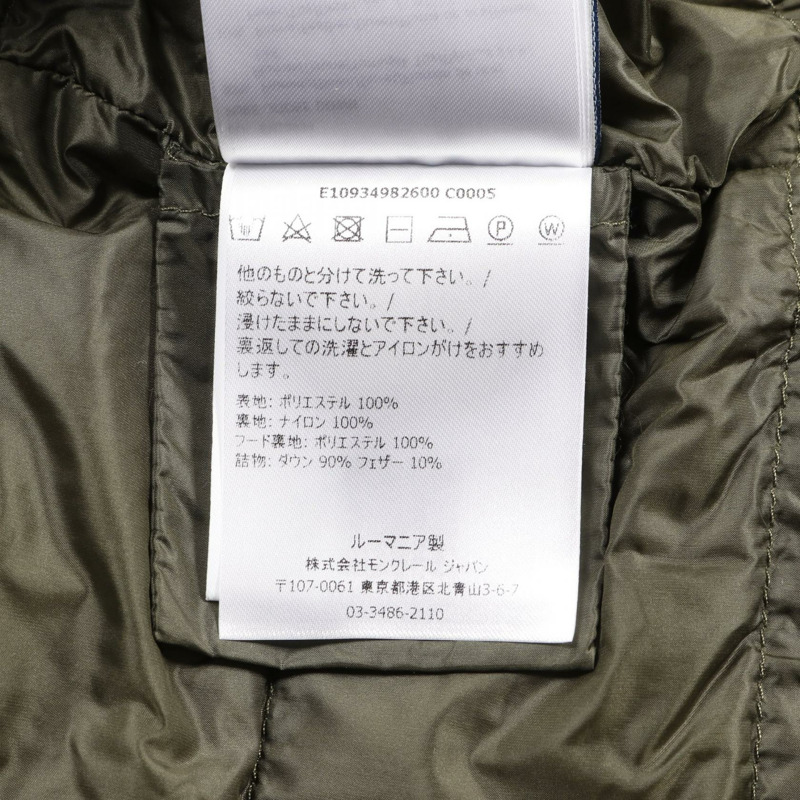 E10934982600 C0005
P W
他のものと分けて洗って下さい。/
絞らないで下さい。/
浸けたままにしないで下さい。/
裏返しての洗濯とアイロンがけをおすすめ
します。
表地: ポリエステル 100%
裏地: ナイロン 100%
フード裏地: ポリエステル 100%
詰物: ダウン 90% フェザー 10%
ルーマニア製
株式会社モンクレール ジャパン
〒107-0061 東京都港区北青山3-6-7
03-3486-2110